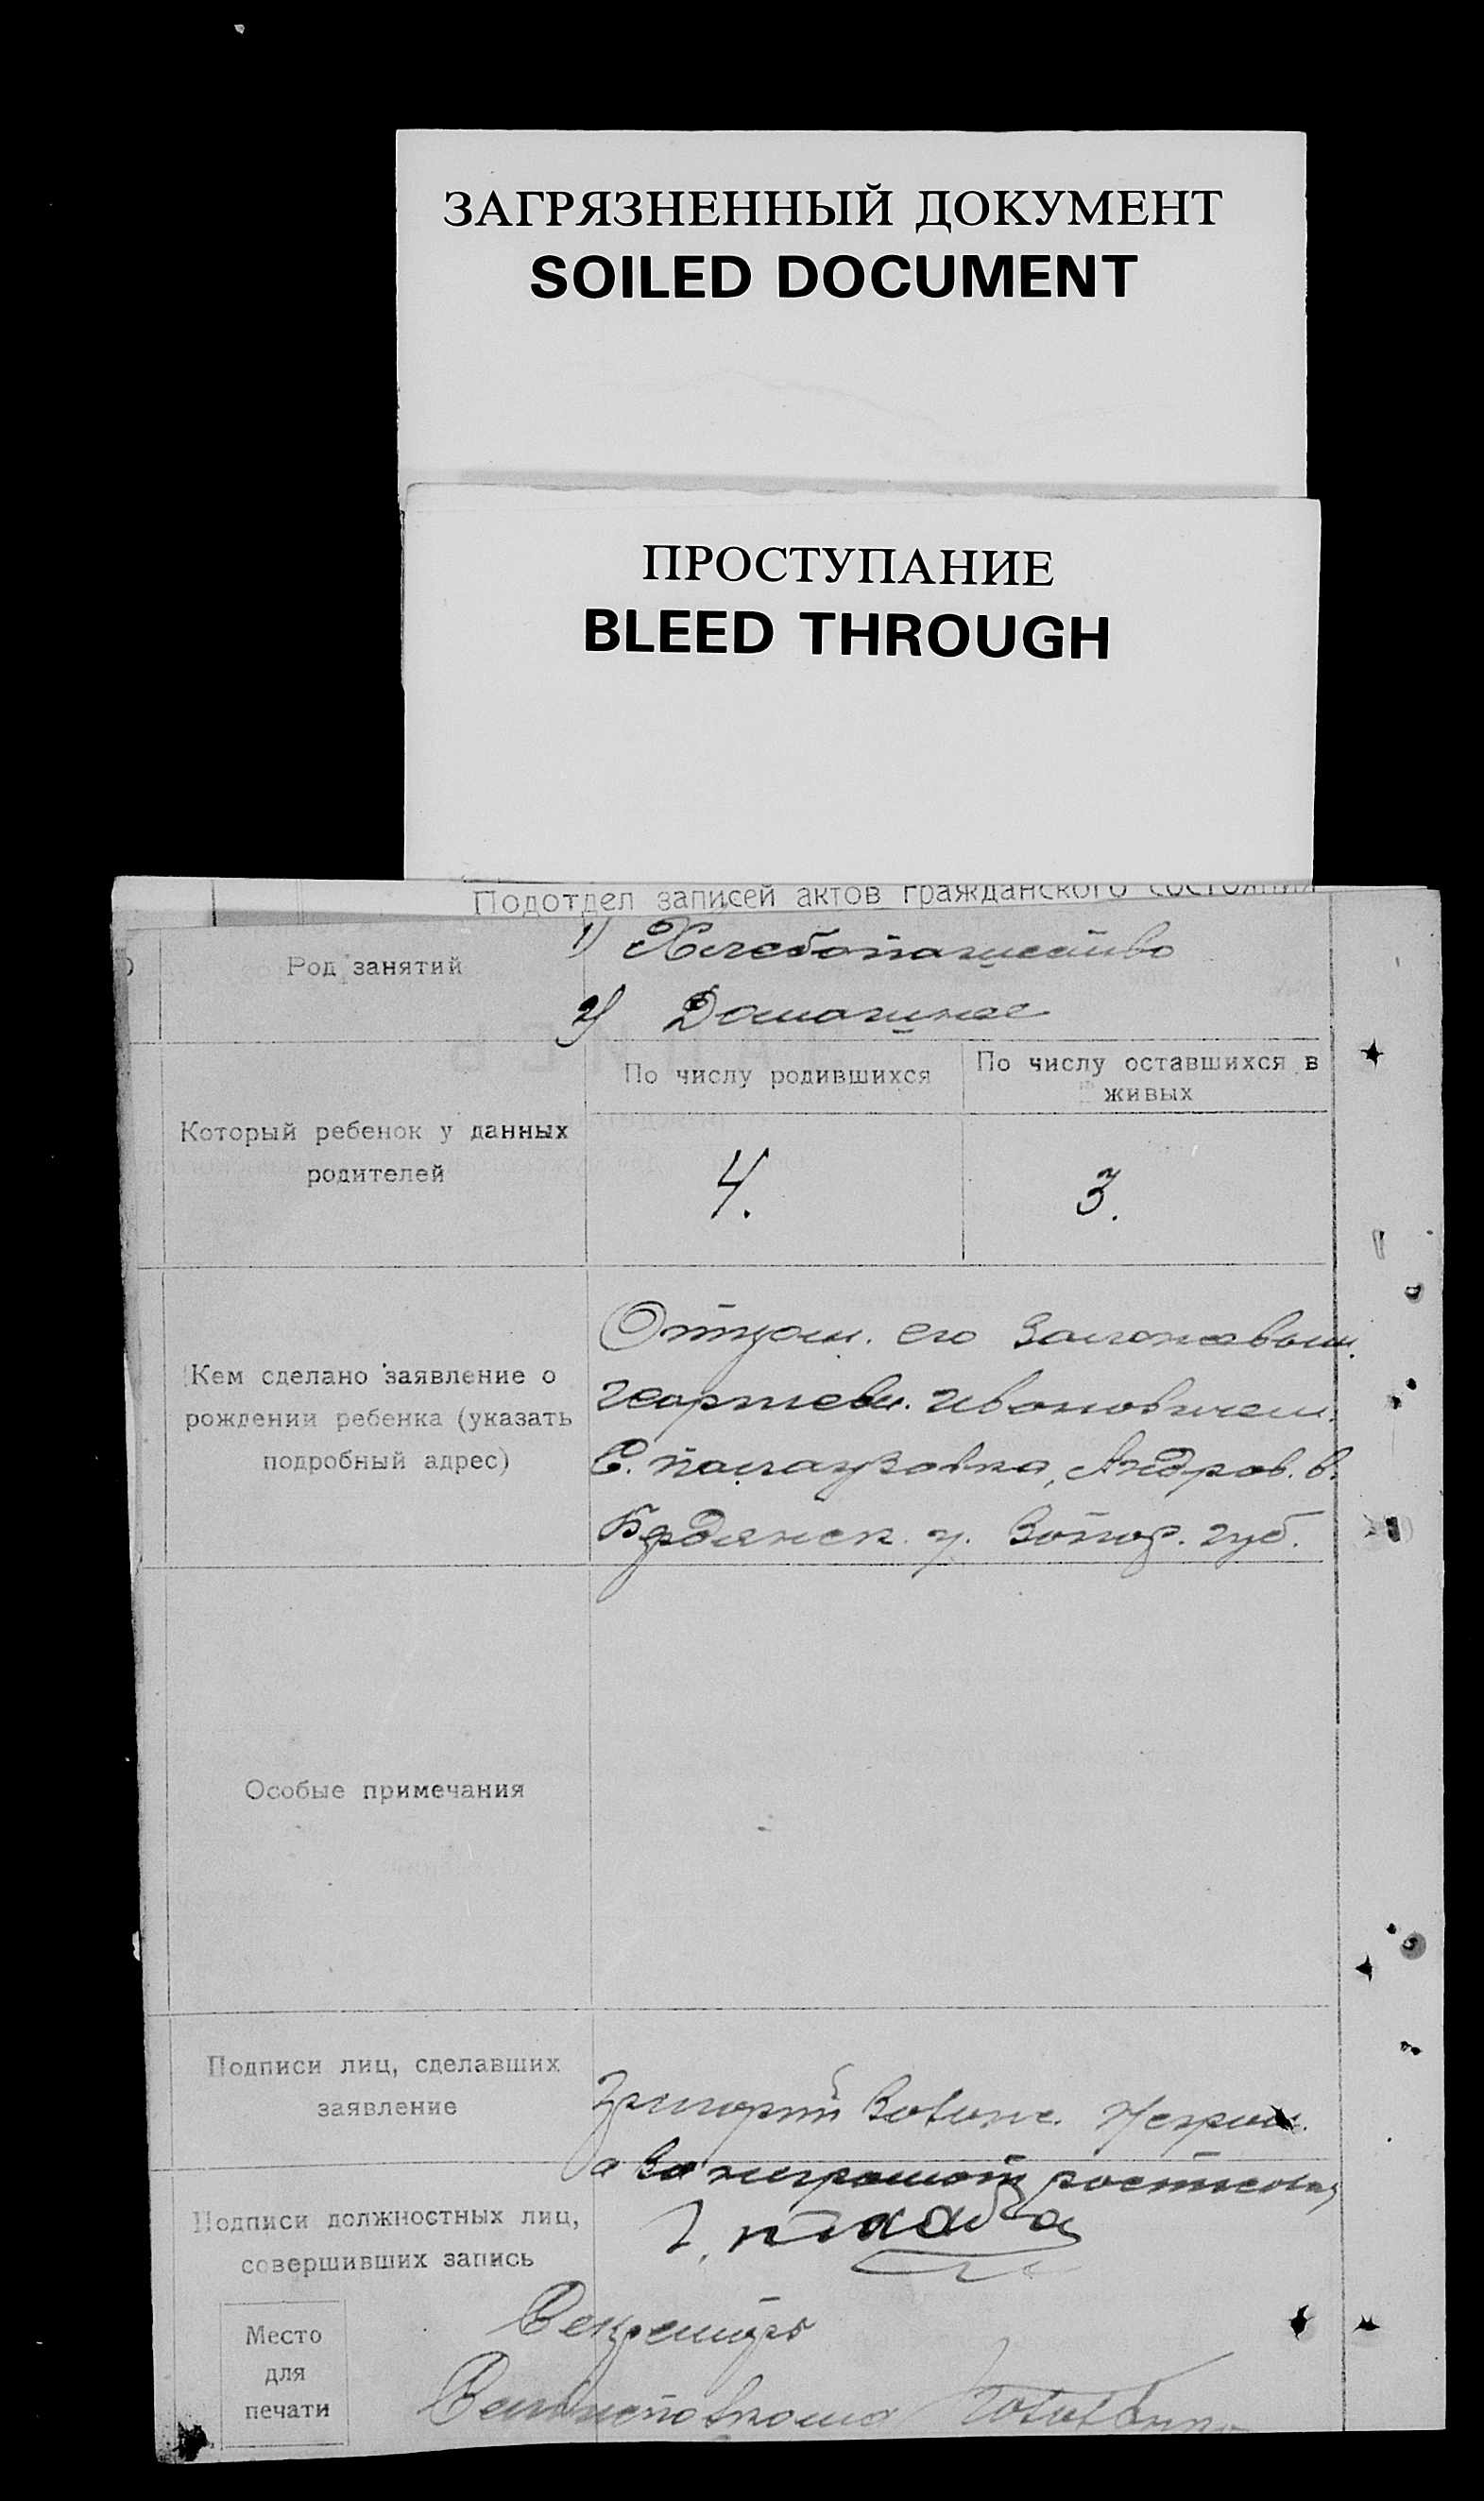 ЗАГРЯЗНЕННЫЙ ДОКУМЕНТ
SOILED DOCUMENT
ПРОСТУПАНИЕ
BLEED THROUGH
Подотдел записей актов гражданского состояния
Род занятий
1) Хлебопашество
2) Домашнее
Который ребенок у данных
родителей
По числу родившихся
По числу оставшихся в
живых
4.
3.
Кем сделано заявление о
рождении ребенка (указать
подробный адрес)
Отцом. его
Ивановичем.
С. Андров. в.
Бердянск. у. Запор. губ.
Особые примечания
Подписи лиц, сделавших
заявление
Григорий
а за неграмотн
Подписи должностных лиц,
совершивших запись
Секретарь
Место
для
печати